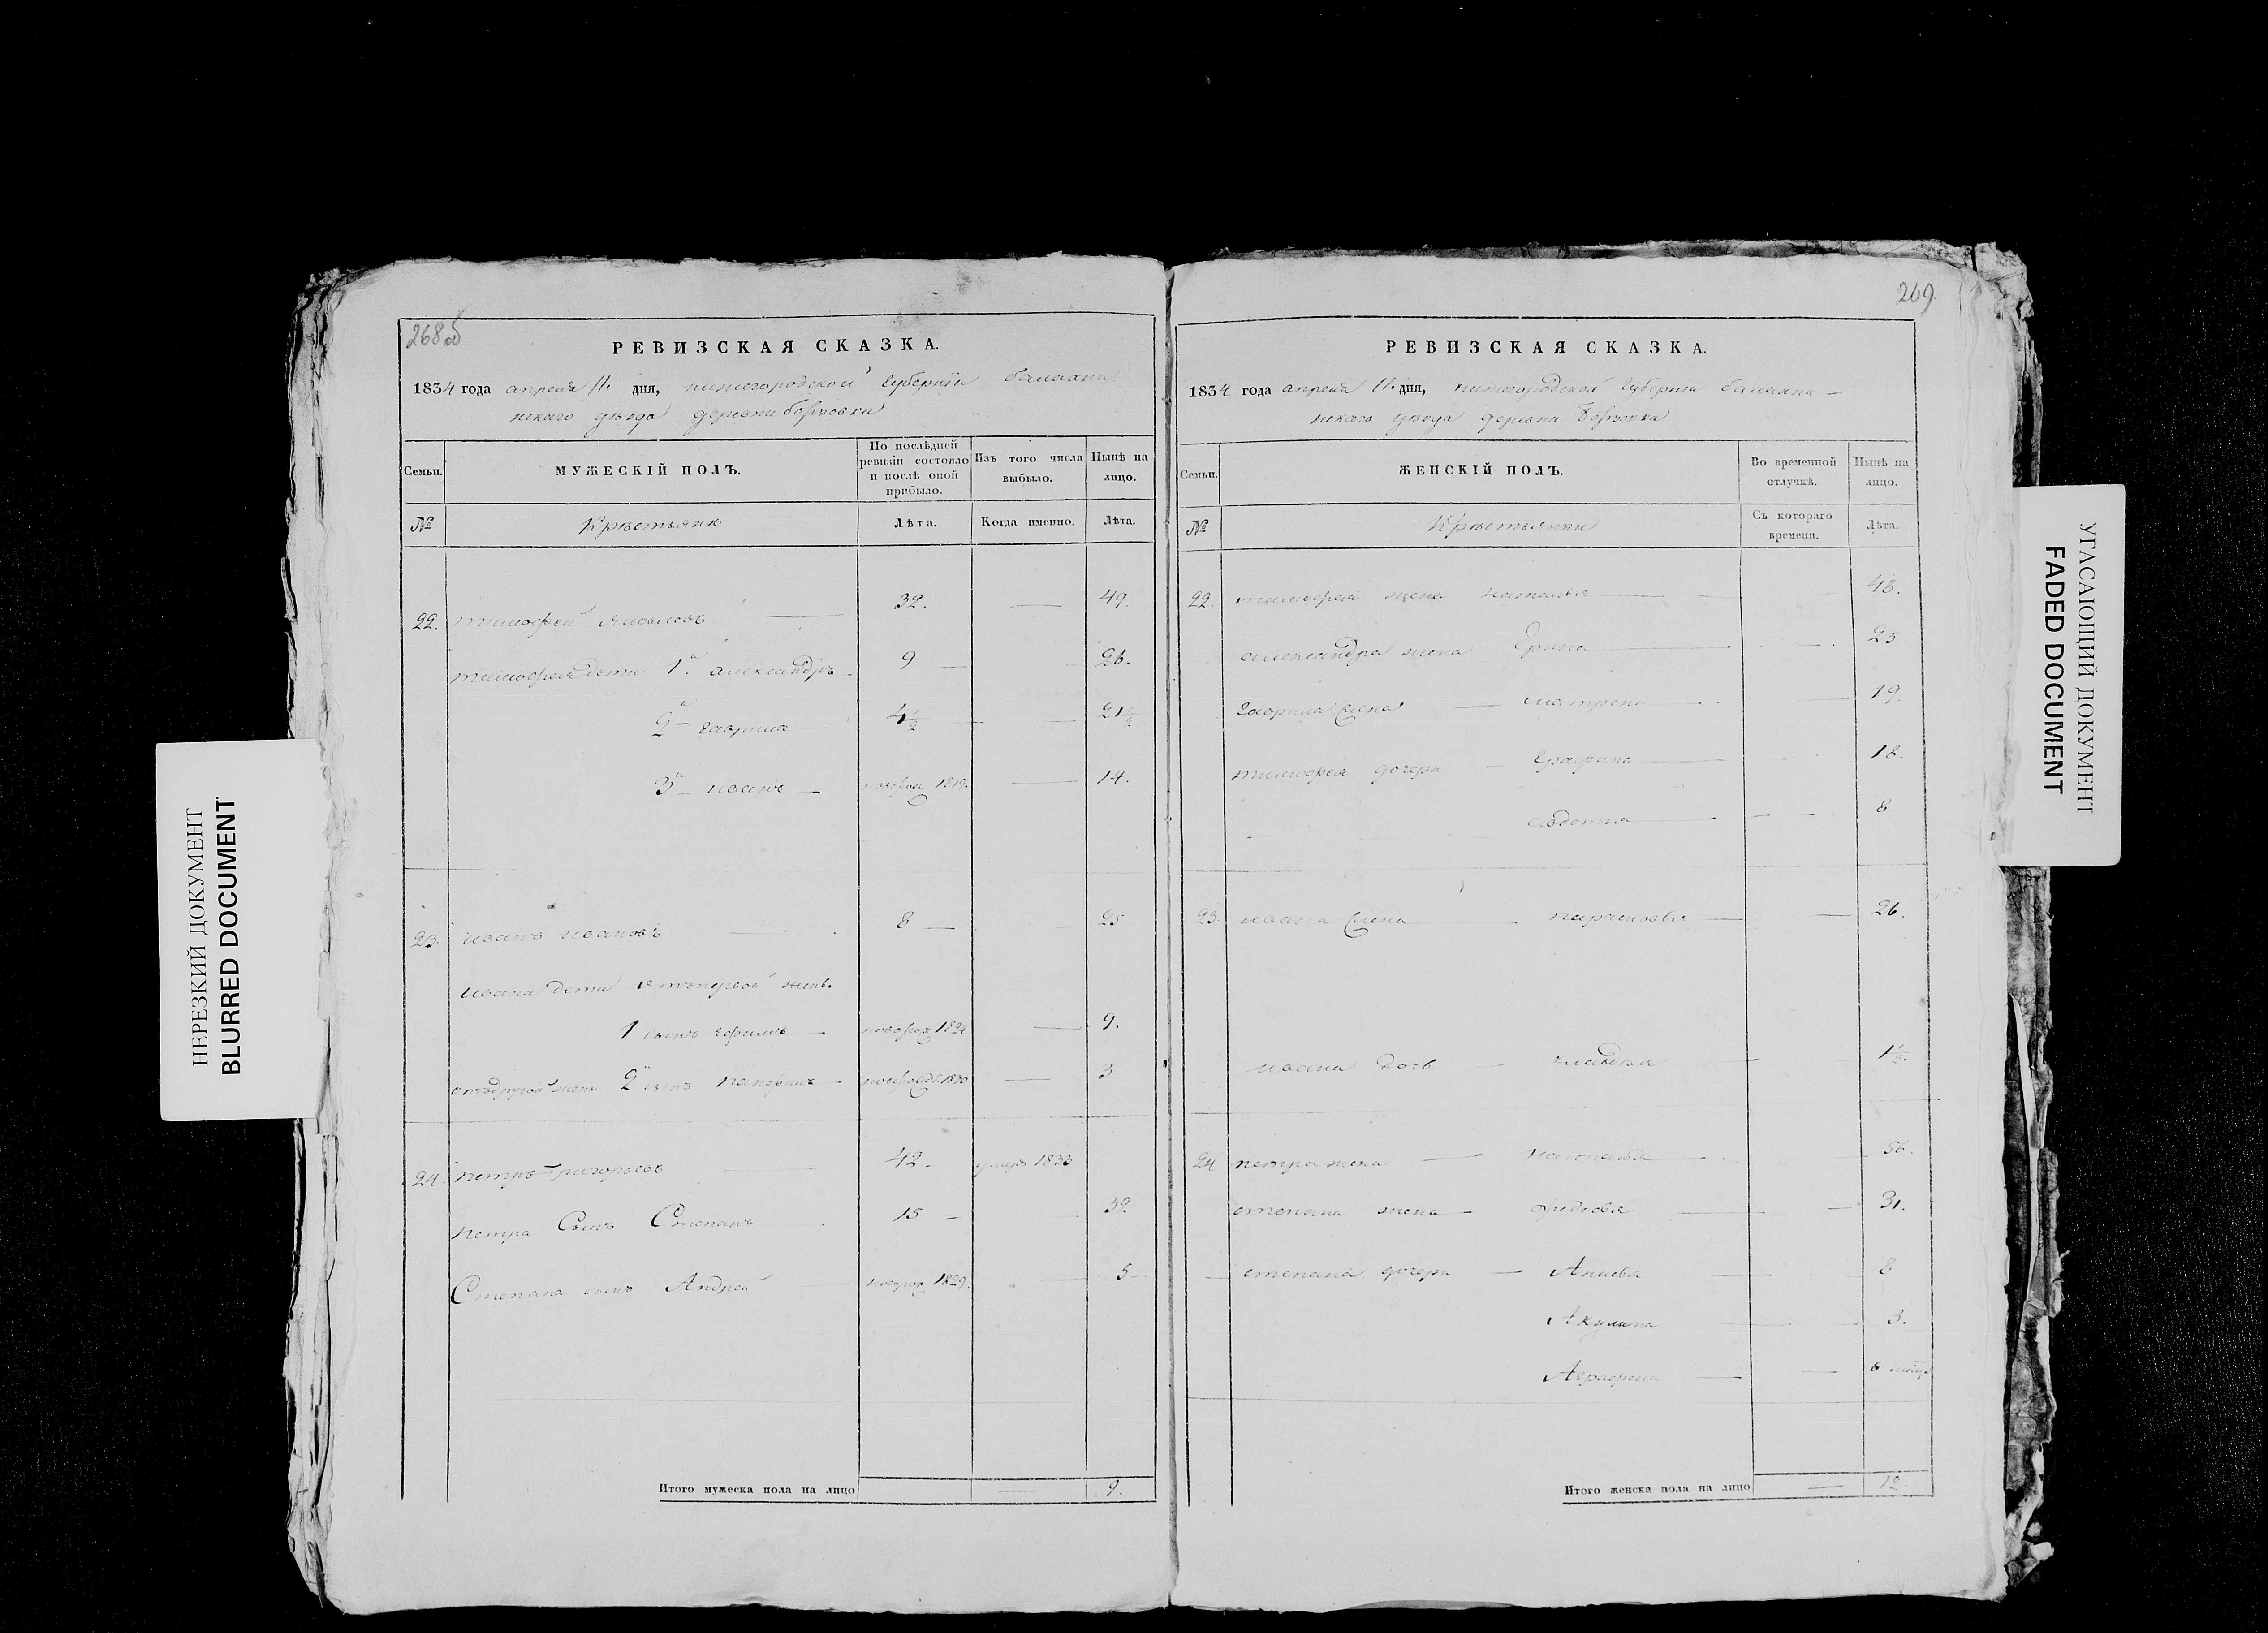 268 об
РЕВИЗСКАЯ СКАЗКА.
1834 года апреля 11. дня, нижегородской губернии балахни
нскаго уезда деревни
Семьи.
МУЖЕСКІЙ ПОЛЪ.
По послѣдней ревизіи состояло и послѣ оной прибыло.
Изъ того числа выбыло.
Нынѣ на лицо.
№
Крестьяне
Лѣта.
Когда именно.
Лѣта.
22. тимофей яковлевъ 32. — 49.
тимофея дети 1й александръ 9 — 26.
2й гаврила 4½ — 21½
3й иванъ новорож 1819. — 14.
23. иванъ ивановъ 8 — 25
ивана дети отъ первой жены
1 сынъ ефимъ новорож 1824 — 9.
отъ другой жены 2й сынъ новорожд 1830 — 3
24. петръ григорьевъ 42 — умеръ 1833
петра Сынъ Степанъ 15 — 32
Степана сынъ Андрей новорож 1829. — 5
Итого мужеска пола на лицо — 9.
269
РЕВИЗСКАЯ СКАЗКА.
1834 года апреля 11. дня, нижегородской губернии балахни
нскаго уезда деревни
Семьи.
ЖЕНСКІЙ ПОЛЪ.
Во временной отлучкѣ.
Нынѣ на лицо.
№
Крестьянки
Съ котораго времени.
Лѣта.
22. тимофея жена наталья — 48.
александра жена Ерина — 25
гаврила жена — матрена — 19.
тимофея дочери — — 18.
авдотья — 8
23. ивана жена — парасковья — 26.
ивана дочь — — 1½.
24 петра жена — — 56.
степана жена — федосья — 31.
степана дочери — Анисья — 8
Акулина — 3.
Аграфена — 6 месяц
Итого женска пола на лицо — 12.
НЕРЕЗКИЙ ДОКУМЕНТ
BLURRED DOCUMENT
УГАСАЮЩИЙ ДОКУМЕНТ
FADED DOCUMENT